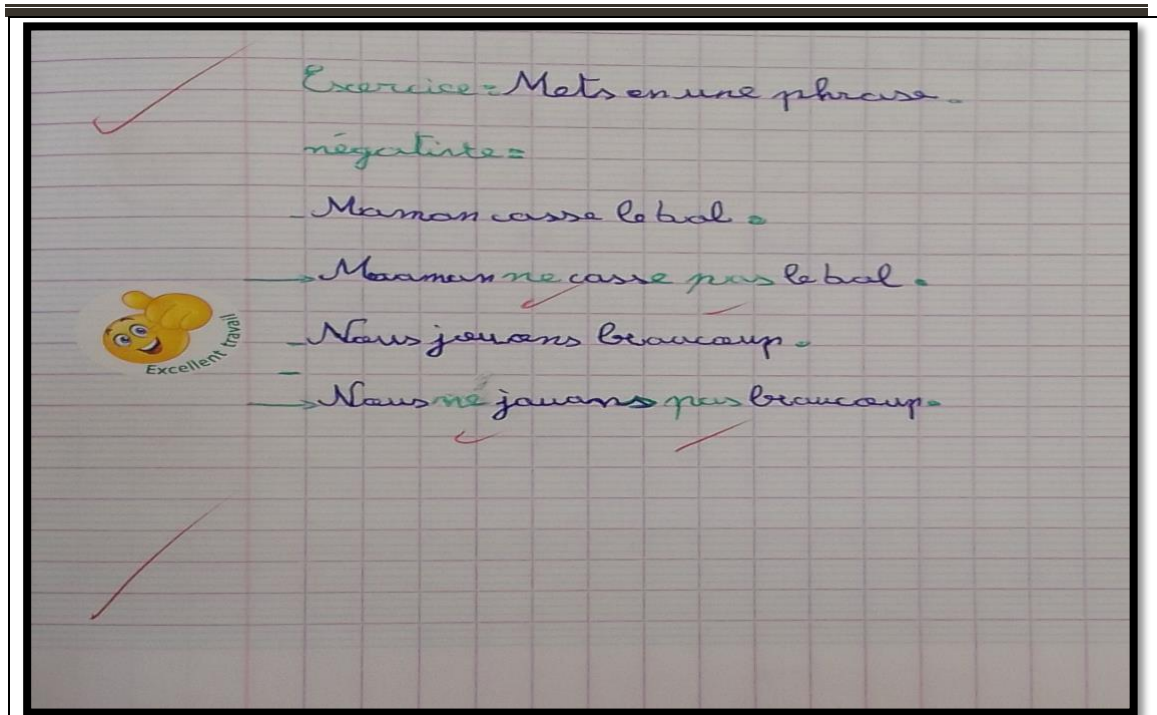 Exercice = Mets en une phrase.
négatinte =
- Maman casse le bol.
→ Maaman ne casse pas le bol.
- Nous jouons beaucoup.
→ Nous ne jouons pas beaucoup.
Excellent travail